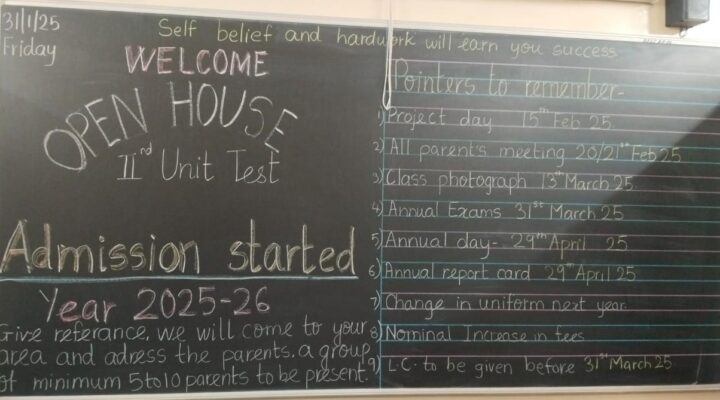 31/1/25
Friday
Self belief and hardwork will earn you success
WELCOME
OPEN HOUSE
IInd Unit Test
Admission started
Year 2025-26
Give referance, we will come to your
area and adress the parents. a group
of minimum 5 to 10 parents to be present.
Pointers to remember-
1) Project day 15th Feb 25
2) All parents meeting 20/21st Feb 25
3) Class photograph 13th March 25
4) Annual Exams 31st March 25
5) Annual day- 29th April 25
6) Annual report card 29th April 25
7) Change in uniform next year.
8) Nominal Increase in fees
9) L.C. to be given before 31st March 25